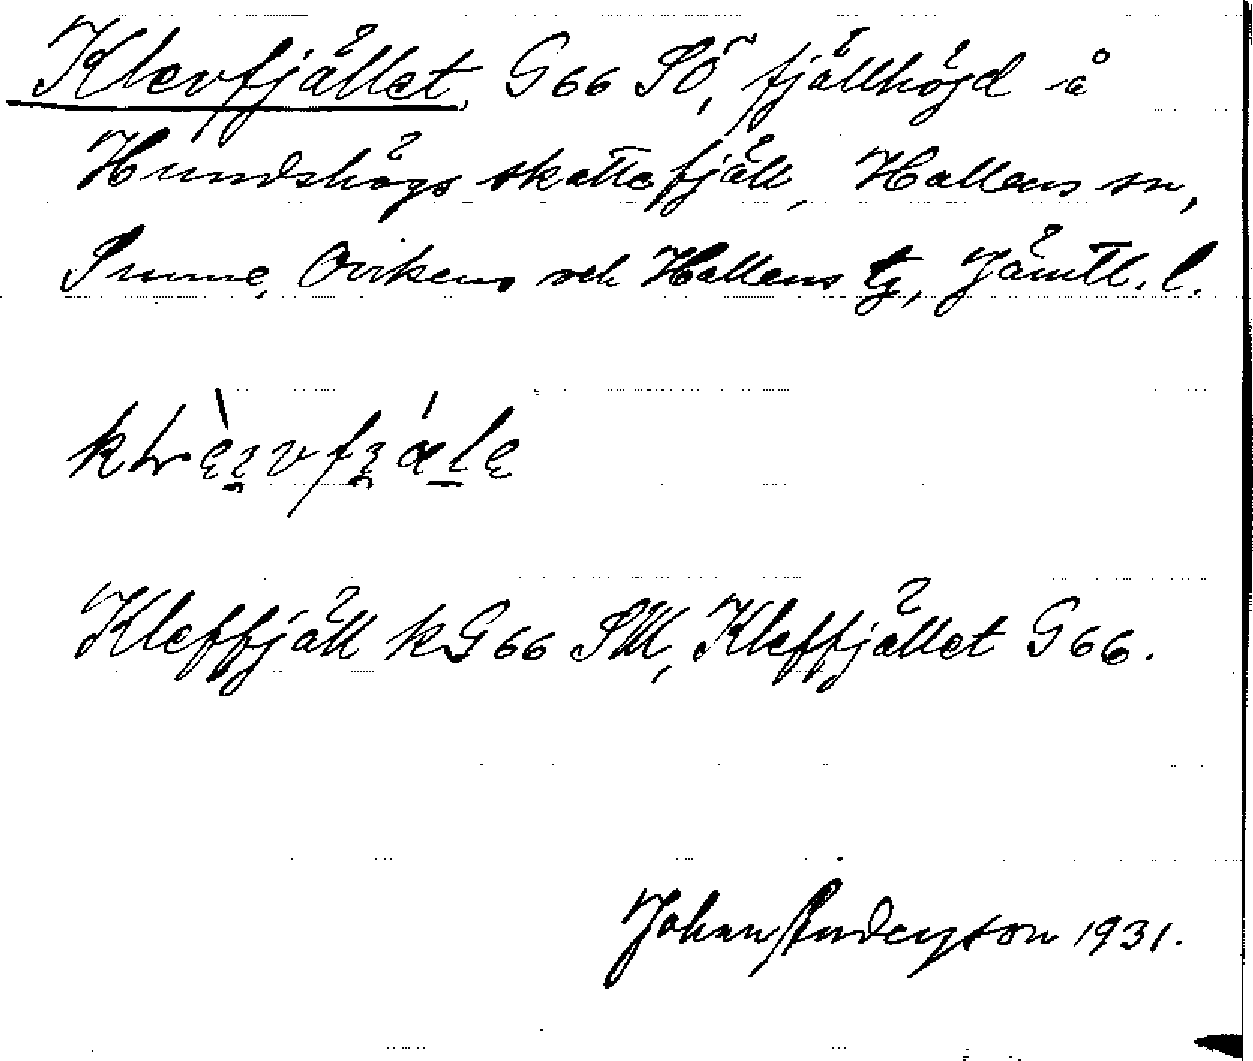 Klevfjället, G66 SÖ, fjällhöjd å
Hundshögs skattefjäll, Hallens sn,
Sunne, Ovikens och Hallens tg, Jämtl. l.
Kleffjäll kG66 SM, Kleffjället G66.
Johan Anderson 1931.